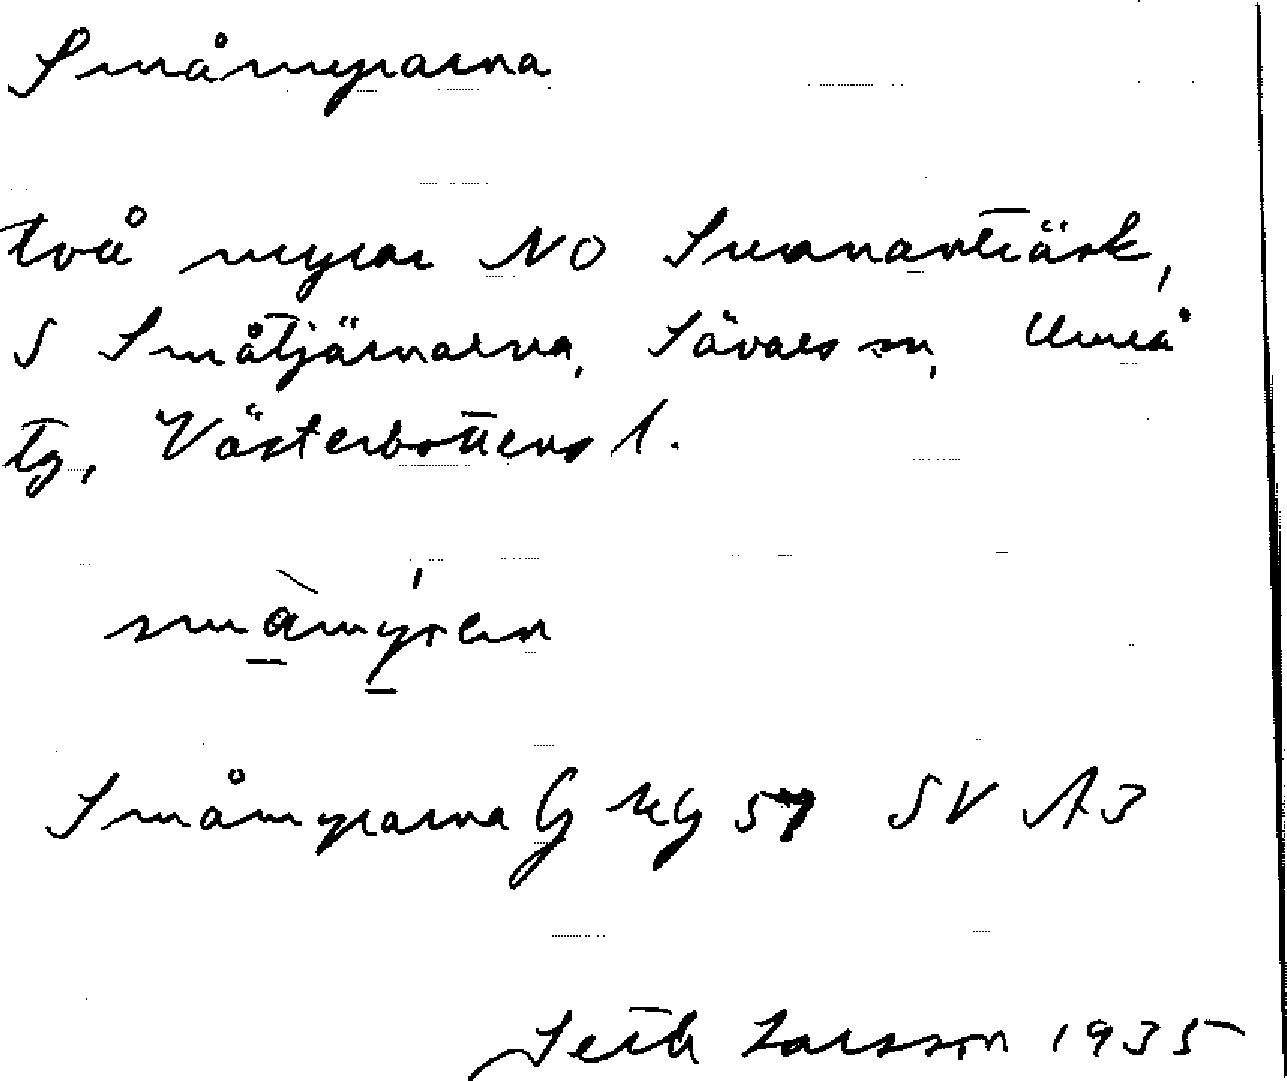 Småmyrarna
två myrar NO Sunnanträsk,
S Småtjärnarna, Sävars sn, Umeå
tg, Västerbottens l.
småmýran
Småmyrarna G kg 57 SV A3
Seth Larsson 1935